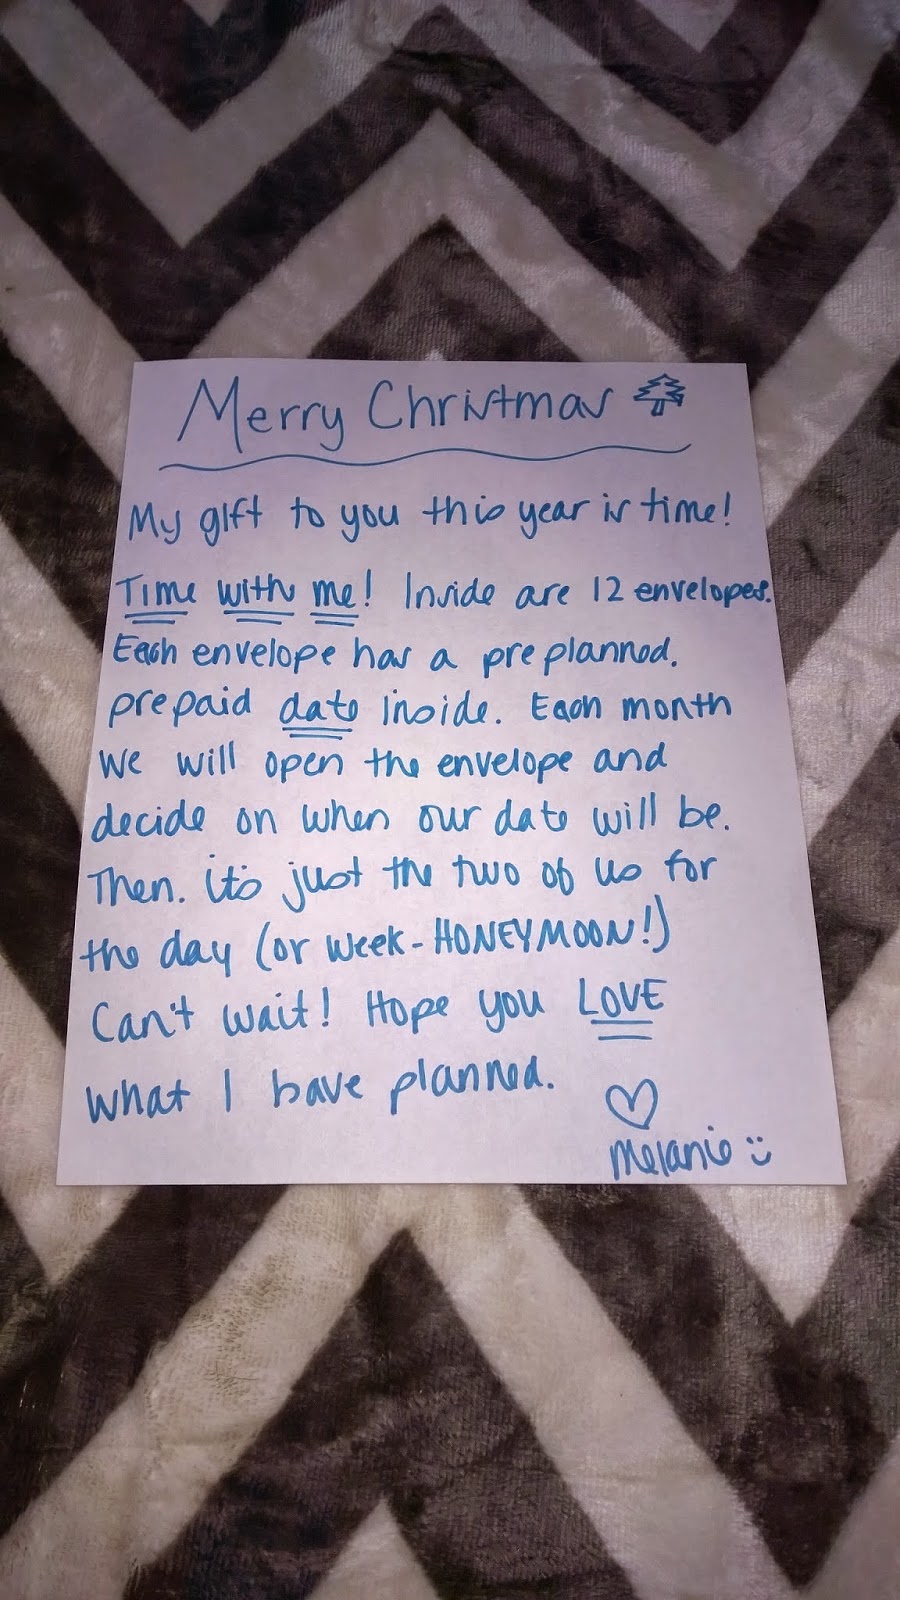 Merry Christmas
My gift to you this year is time!
Time with me! Inside are 12 envelopes.
Each envelope has a preplanned.
prepaid date inside. Each month
we will open the envelope and
decide on when our date will be.
Then. it's just the two of us for
the day (or week - HONEYMOON!)
Can't wait! Hope you LOVE
what I have planned.
Melanie :)